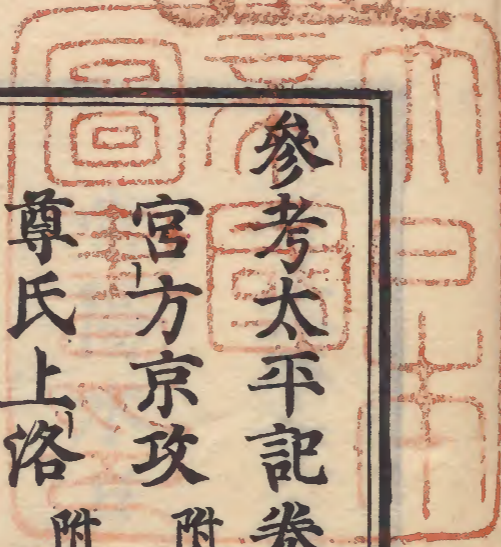 參考太平記卷
宮ノ方京攻 附
尊氏上洛 附